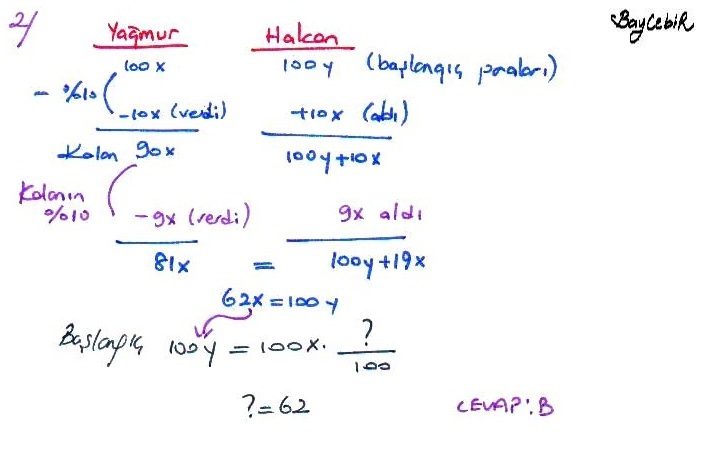 2/ BayCebiR
Yağmur Hakan
100x 100y (başlangıç paraları)
- %10 -10x (verdi) +10x (aldı)
Kalan 90x 100y+10x
Kalanın
%10 -9x (verdi) 9x aldı
81x = 100y+19x
62x=100y
Başlangıç 100y = 100x. ?/100
?=62 CEVAP:B